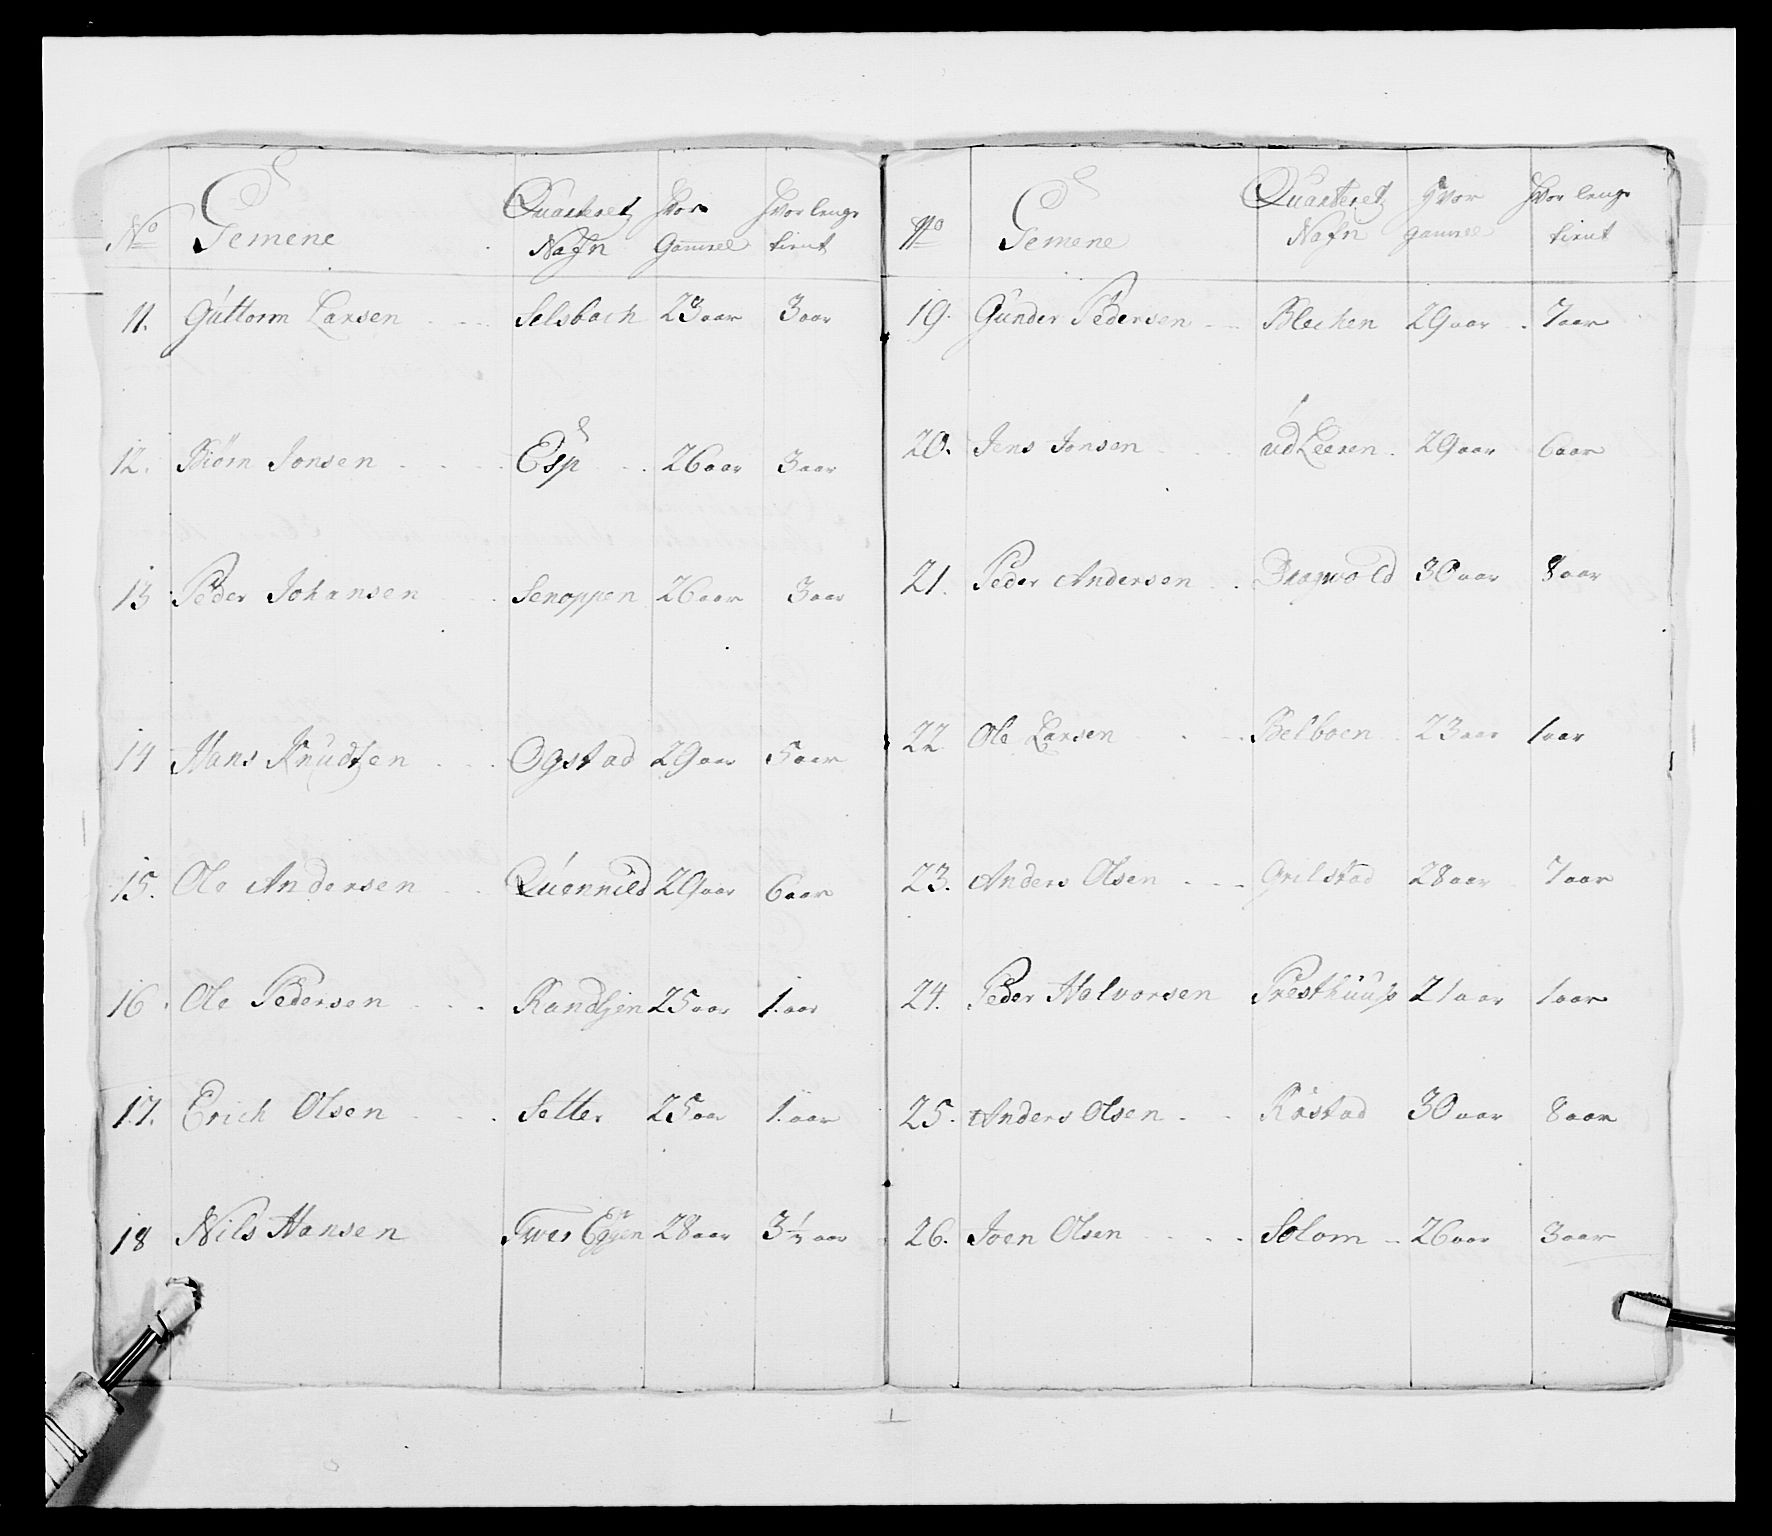 No Gemene Quarteret Nafn Hvor Gammel Hvor lenge tient
11. Guttorm Larsen Selsbach 23 aar 3 aar
12. Biörn Jonsen Esp 26 aar 3 aar
13 Peder Johansen Senoppen 26 aar 3 aar
14 Hans Knudtzen Ogstad 29 aar 5 aar
15. Ole Andersen Quennild 29 aar 6 aar
16. Ole Pedersen Kandsjen 25 aar 1. aar
17. Erich Olsen Setter 25 aar 1. aar
18 Nils Hansen Twer Eggen 28 aar 3 1/2 aar
No Gemene Quarteret Nafn Hvor gammel Hvor lenge tient
19. Gunder Pedersen Blechen 29 aar 7 aar
20. Jens Jonsen ud Leeren 29 aar 6 aar
21. Peder Andersen Dragvold 30 aar 8 aar
22 Ole Larsen Belboen 23 aar 1 aar
23. Anders Olsen Grilstad 28 aar 7 aar
24. Peder Halvorsen Presthuus 21 aar 1 aar
25. Anders Olsen Röstad 30 aar 8 aar
26. Joen Olsen Solom 26 aar 3 aar